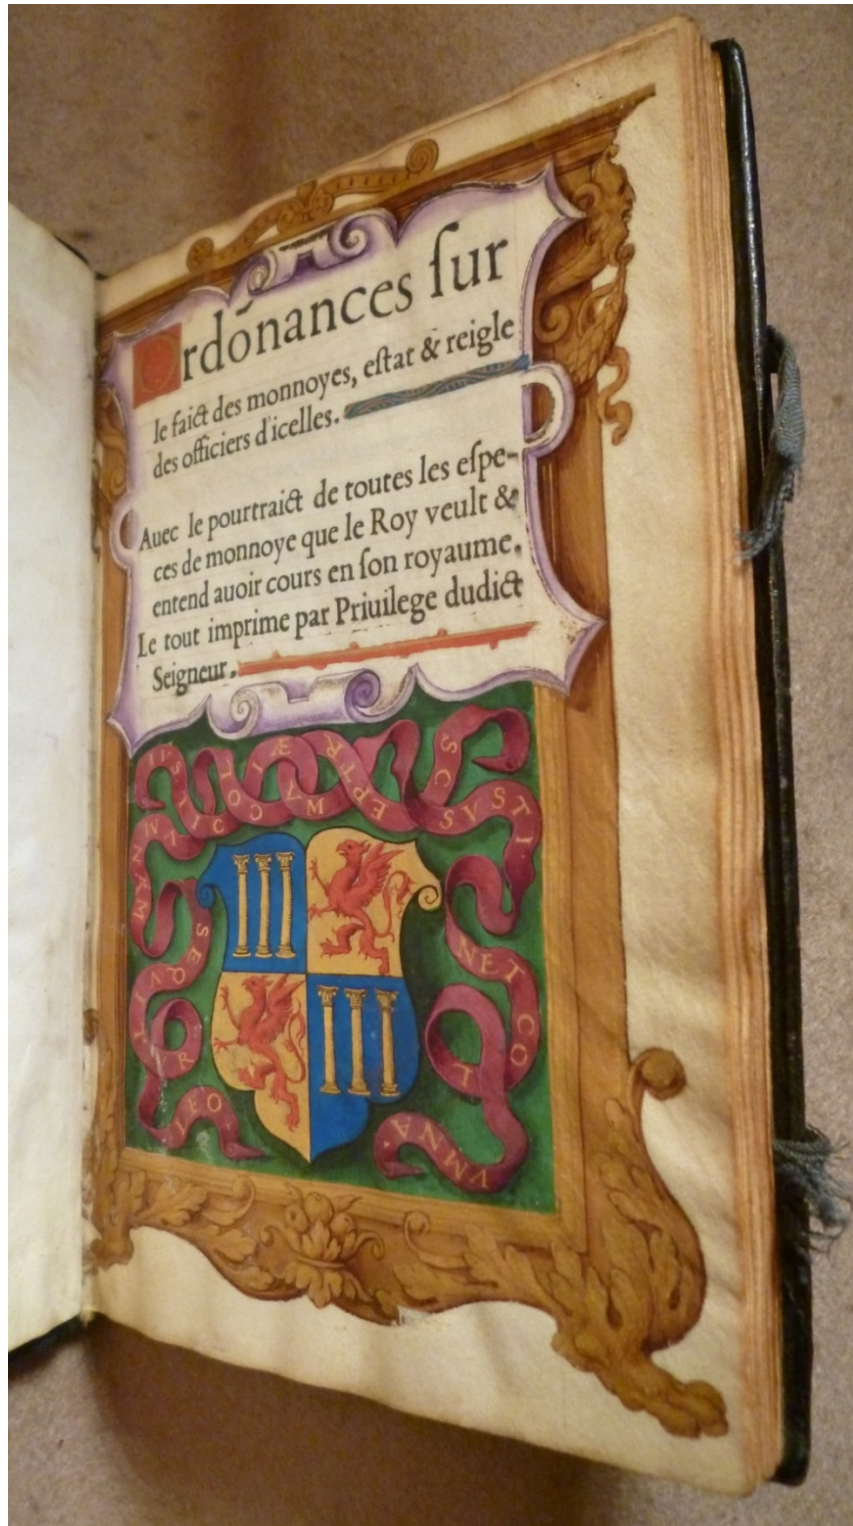 Ordónances ſur
le faict des monnoyes, eſtat & reigle
des officiers d'icelles.
Auec le pourtraict de toutes les eſpe-
ces de monnoye que le Roy veult &
entend auoir cours en ſon royaume.
Le tout imprime par Priuilege dudict
Seigneur.
SC SVSTI
NET CO
L
VMNA
NAM
SEQV